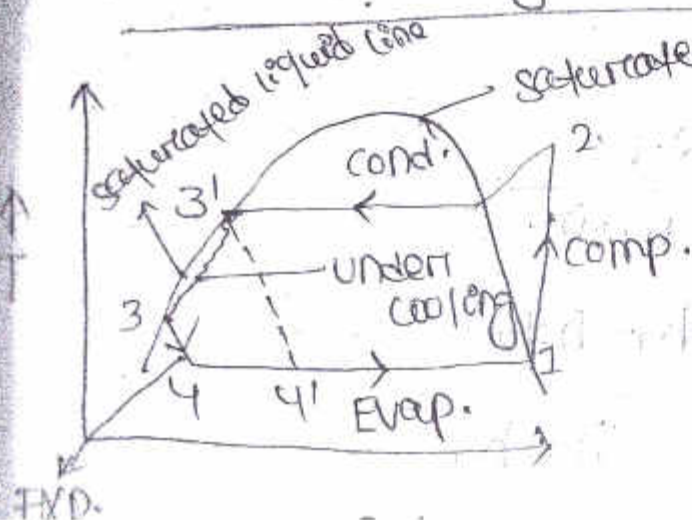 saturcated liquid line
saturcate
cond.
2
3'
comp.
underr
cooling
3
1
4
4'
Evap.